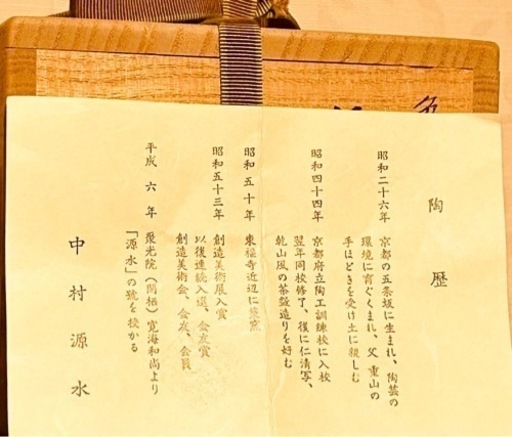 陶歴
昭和二十六年 京都の五条坂に生まれ、陶芸の
環境に育ぐくまれ、父 重山の
手ほどきを受け土に親しむ
昭和四十四年 京都府立陶工訓練校に入校
翌年同校修了、後に仁清写、
乾山風の茶盌造りを好む
昭和五十年 東福寺近辺に築窯
昭和五十三年 創造美術展入賞
以後連続入選、会友賞
創造美術会、会友、会員
平成六年 聚光院(閑栖)寛海和尚より
「源水」の號を授かる
中村源水